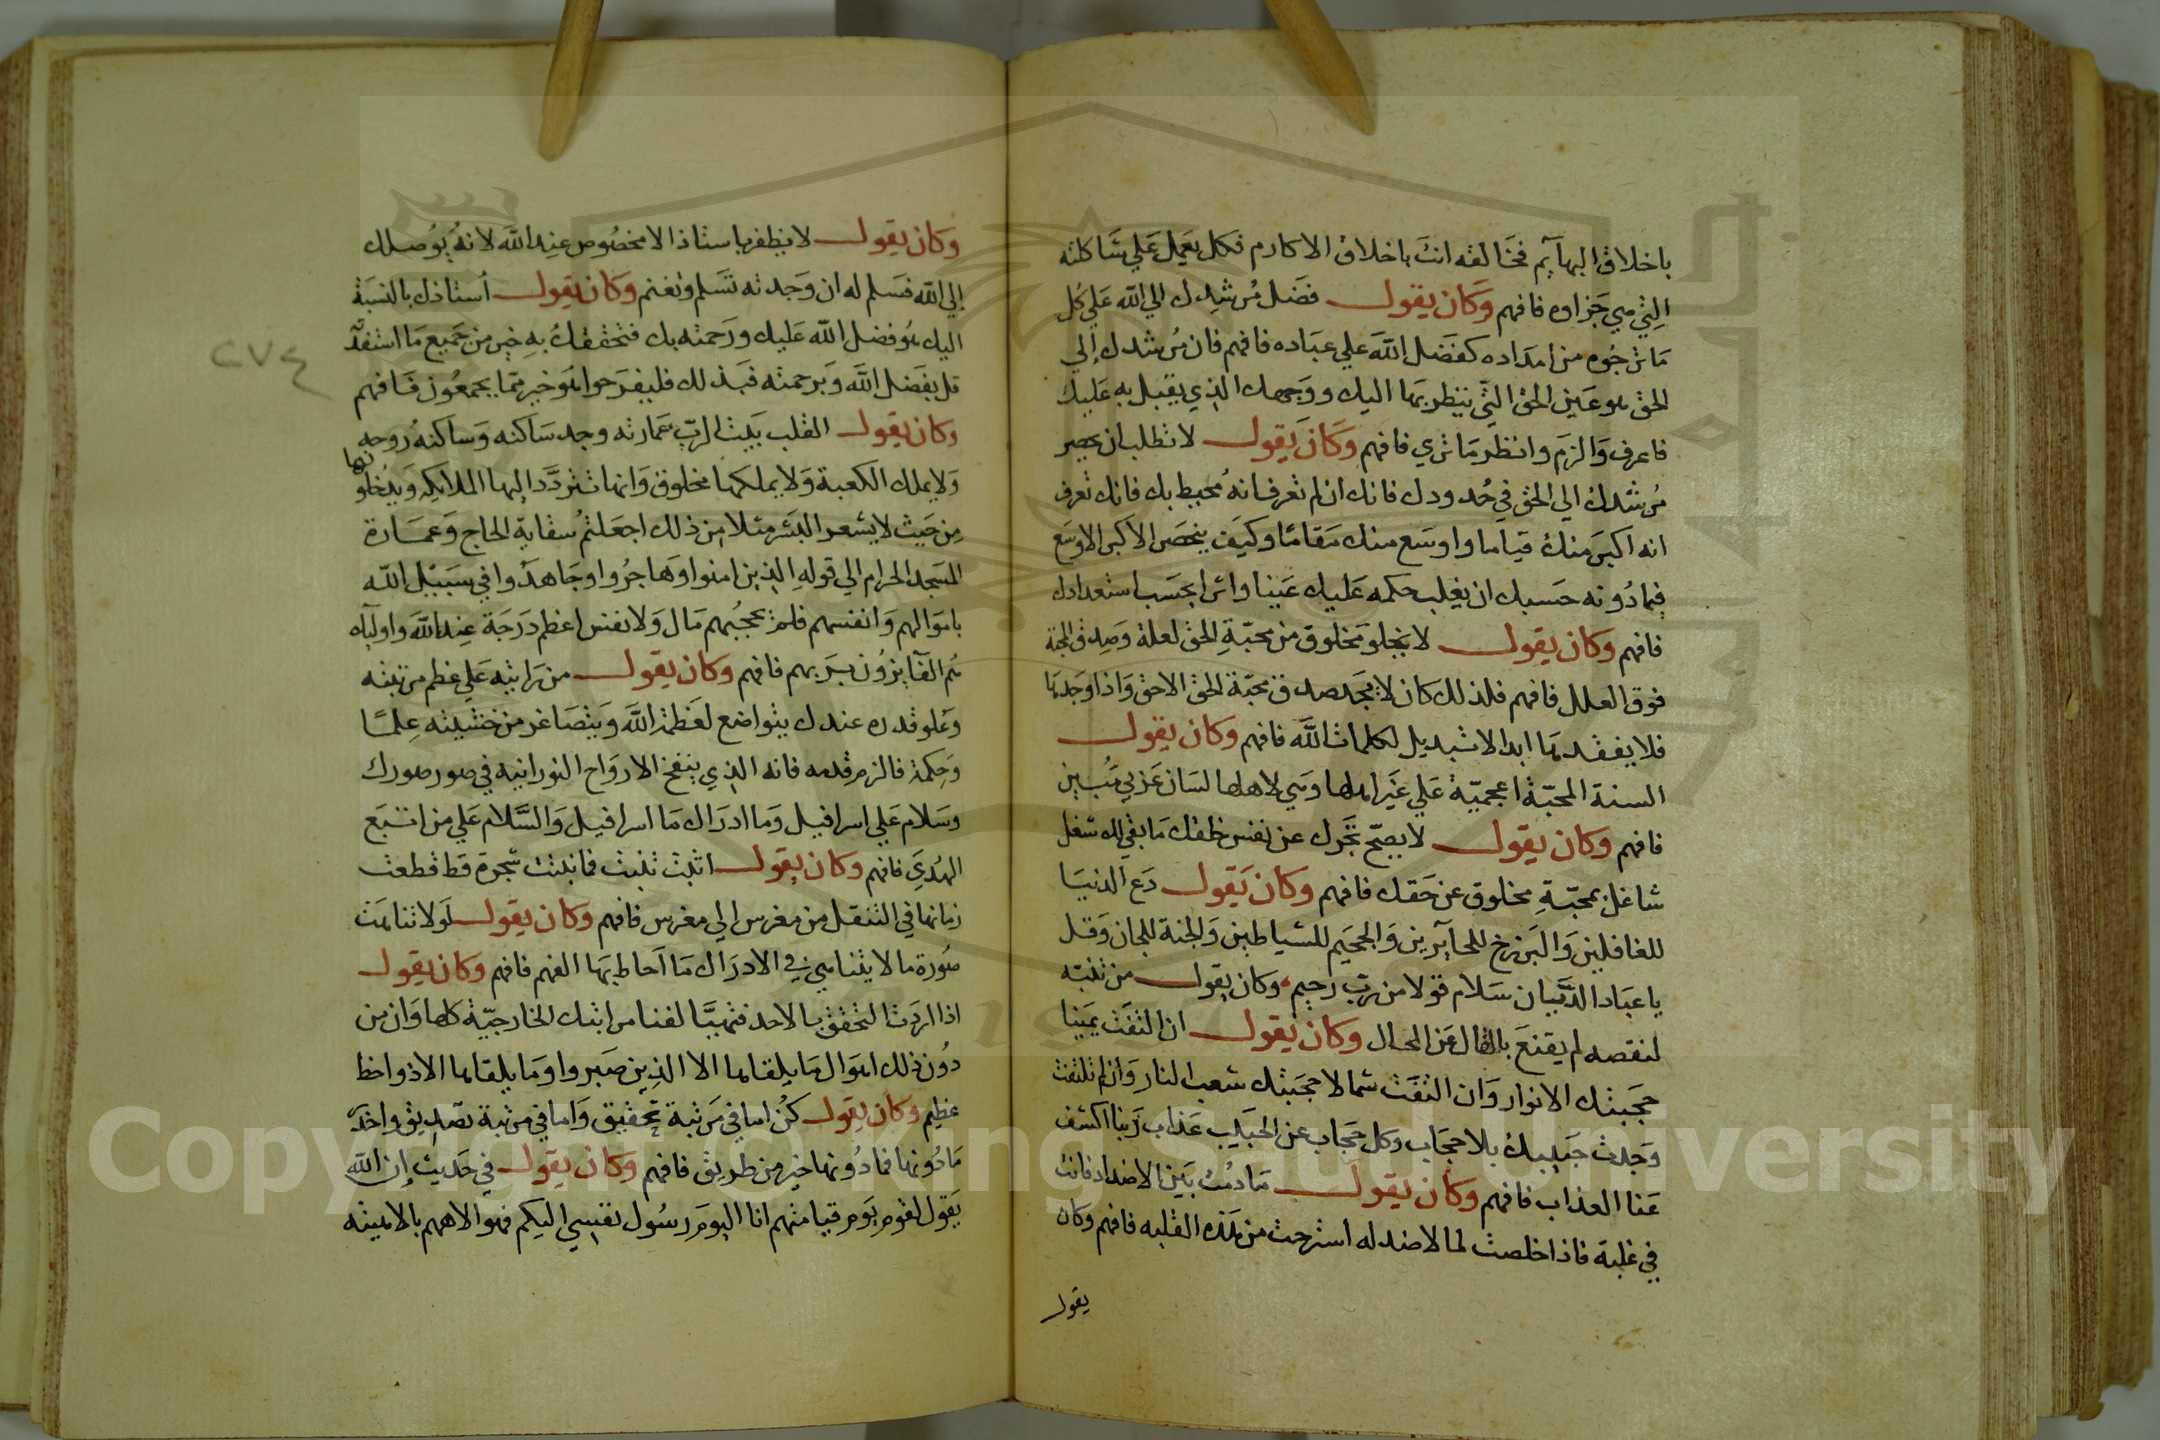 باخلاق البهآيم فخالفه انت باخلاق الاكارم فكل يعمل علي شاكلته
التي هي جزاوه فافهم وكان يقول فضل مرشدك الي الله علي كل
ما ترجوه من امداده كفضل الله علي عباده فافهم فان مرشدك إلي
الحق هو عين الحق التي ينظر بها اليك ووجهه الذي يقبل به عليك
فاعرف والزم وانظر ما تري فافهم وكان يقول لا تطلب ان يحصر
مرشدك الي الحق في حدودك فانك ان لم تعرف انه محيط بك فانك تعرف
انه اكبر منك قياما واوسع منك مقاما وكيف ينحصر الاكبر الاوسع
فيما دونه حسبك ان يغلب حكمه عليك عينا واثرا بحسب استعدادك
فافهم وكان يقول لا يخلو مخلوق من محبة الحق لعلة وصدق المحبة
فوق العلل فافهم فلذلك كان لا يجد صدق محبة الحق الا حق واذا وجدها
فلا يفقدها ابدا لا تبديل لكلمات الله فافهم وكان يقول
السنة المحبة اعجمية علي غير اهلها وهي لاهلها لسان عربي مبين
فافهم وكان يقول لا يصح تجرك عن نفس حظك ما بقي لك شغل
شاغل بمحبة مخلوق عن حقك فافهم وكان يقول دع الدنيا
للغافلين والبرزخ للحآيرين والجحيم للشياطين والجنة للجان وقل
يا عباد الديان سلام قولا من رب رحيم، وكان يقول من تنبه
لنقصه لم يقنع بالقال عن الحال وكان يقول ان التفت يمينا
حجبتك الانوار وان التفت شمالا حجبتك شعب النار وان لم تلتفت
وجدت حبيبك بلا حجاب وكل حجاب عن الحبيب عذاب ربنا اكشف
عنا العذاب فافهم وكان يقول ما دمت بين الاضداد فانت
في غلبة فاذا خلصت لما لا ضد له استرحت من هذه الغلبه فافهم وكان
يقول
وكان يقول لا يظفر باستاذ الا مخصوص عند الله لانه يوصلك
إلي الله فسلم له ان وجدته تسلم وتغنم وكان يقول أستاذك بالنسبة
اليك هو فضل الله عليك ورحمته بك فتحققك به خير من جميع ما استفدته
٢٧٤
قل بفضل الله وبرحمته فبذلك فليفرحوا هو خير مما يجمعون فافهم
وكان يقول القلب بيت الرب عمارته وجد ساكنه وساكنه روحه
ولا يملك الكعبة ولا يملكها مخلوق وانها تتردد اليها الملايكه ويدخلونها
من حيث لا يشعر البشر مثلا من ذلك اجعلتم سقاية الحاج وعمارة
المسجد الحرام الي قوله الذين امنوا وهاجروا وجاهدوا في سبيل الله
باموالهم وانفسهم فلم يحجبهم مال ولا نفس اعظم درجة عند الله واوليك
هم الفآيزون بربهم فافهم وكان يقول من رايته علي عظم مرتبته
وعلو قدره عندك يتواضع لعظمة الله ويتصاغر من خشيته علما
وحكمة فالزم قدمه فانه الذي ينفخ الارواح النورانيه في صور صورك
وسلام علي اسرافيل وما ادراك ما اسرافيل والسلام علي من اتبع
الهدي فافهم وكان يقول اثبت تنبت فما نبتت شجرة قط قطعت
زمانها في التنقل من مغرس الي مغرس فافهم وكان يقول لولا تناهت
صورة ما لا يتناهي في الادراك ما احاط بها الفهم فافهم وكان يقول
اذا اردت التحقق بالاحد فتهيا لفنا مراتبك الخارجية كلها وان من
دون ذلك اهوال ما يلقاها الا الذين صبروا وما يلقاها الا ذو احظ
عظيم وكان يقول كن اما في مرتبة تحقيق واما في مرتبة تصديق واحذر
ما دونها فما دونها خير من طريق فافهم وكان يقول في حديث إن الله
يقول لقوم يوم قيامتهم انا اليوم رسول نفسي اليكم فهو الاههم بالامينه